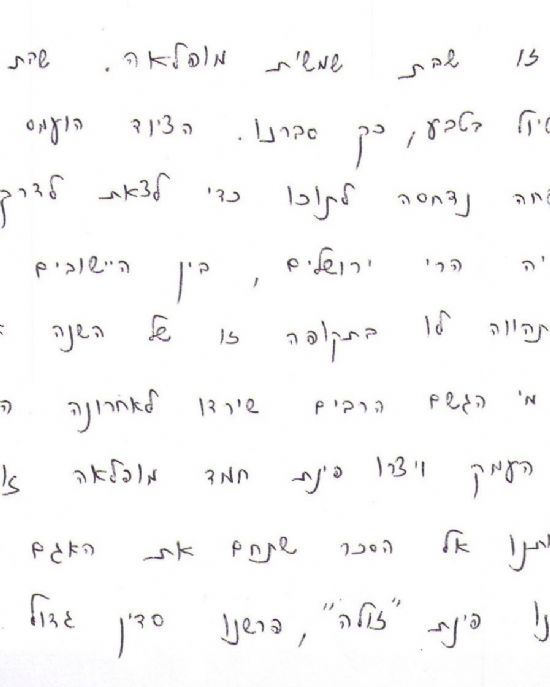 זו שבת שמשית מופלאה. שבת
טיול בטבע, כך סברנו. הציוד הועמס
נדחסה לתוכו כדי לצאת לדרך
הרי ירושלים, בין היישובים
תהווה לו בתקופה זו של השנה
מי הגשם הרבים שירדו לאחרונה ה
העמק ויצרו פינת חמד מופלאה זו
אל הסכר שתחם את האגם
נו פינת "זולה", פרשנו סדין גדול